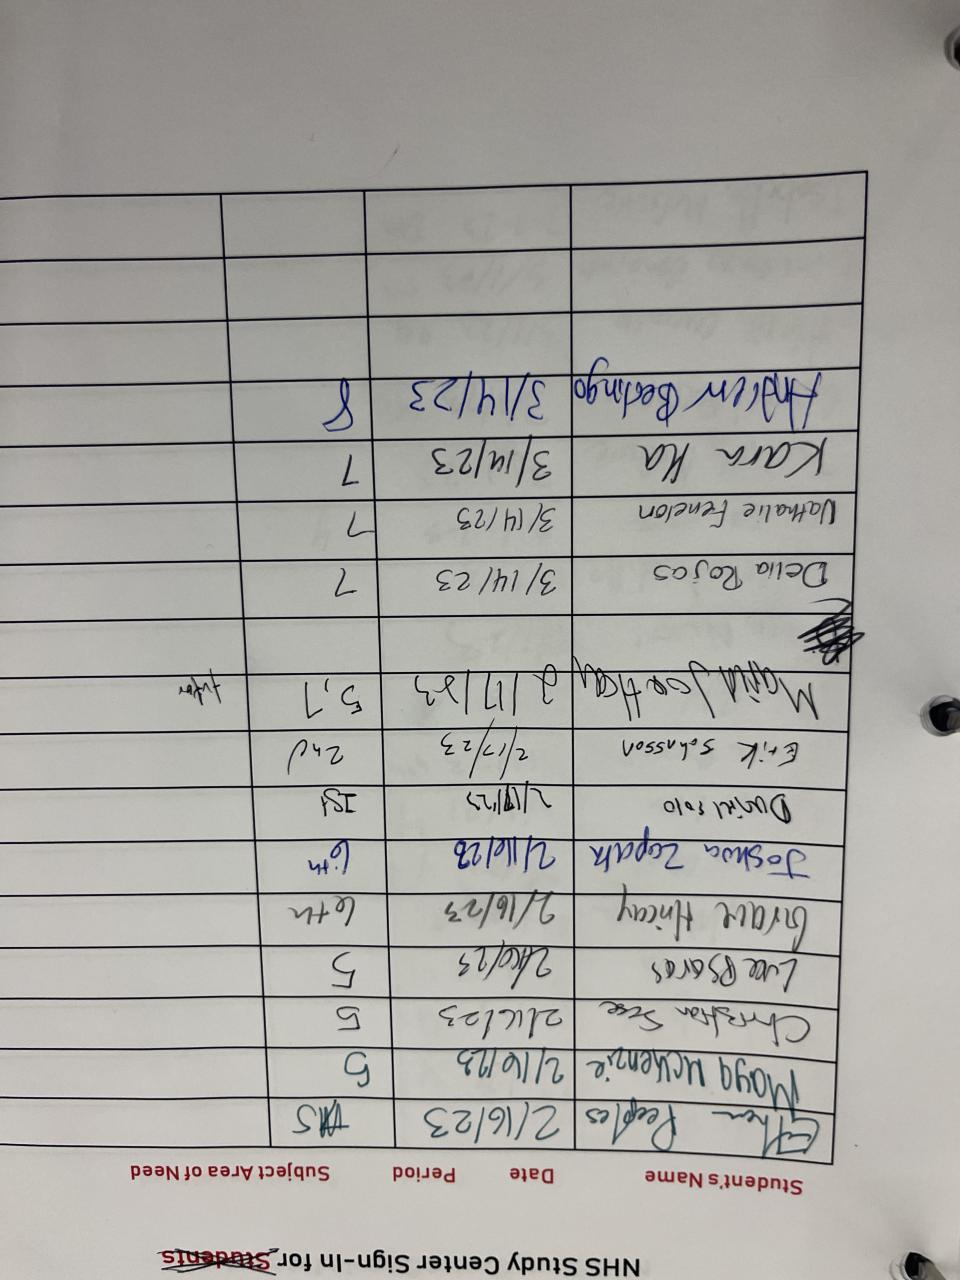 NHS Study Center Sign-In for Students
Student's Name Date Period Subject Area of Need
Ethan Peeples 2/16/23 5
Maya McKenzie 2/16/23 5
Christian 2/16/23 5
Luke Psaras 2/16/23 5
Grace Hincay 2/16/23 6th
Joshua Zapata 2/16/23 6th
Daniel Solo 2/17/23 1st
Erik Johnsson 2/17/23 2nd
Maria Jose 2/17/23 5,7 tutor
Delia Rojas 3/14/23 7
Nathalie Fenelon 3/14/23 7
Kara Ha 3/14/23 7
Andrew Bedingo 3/14/23 8